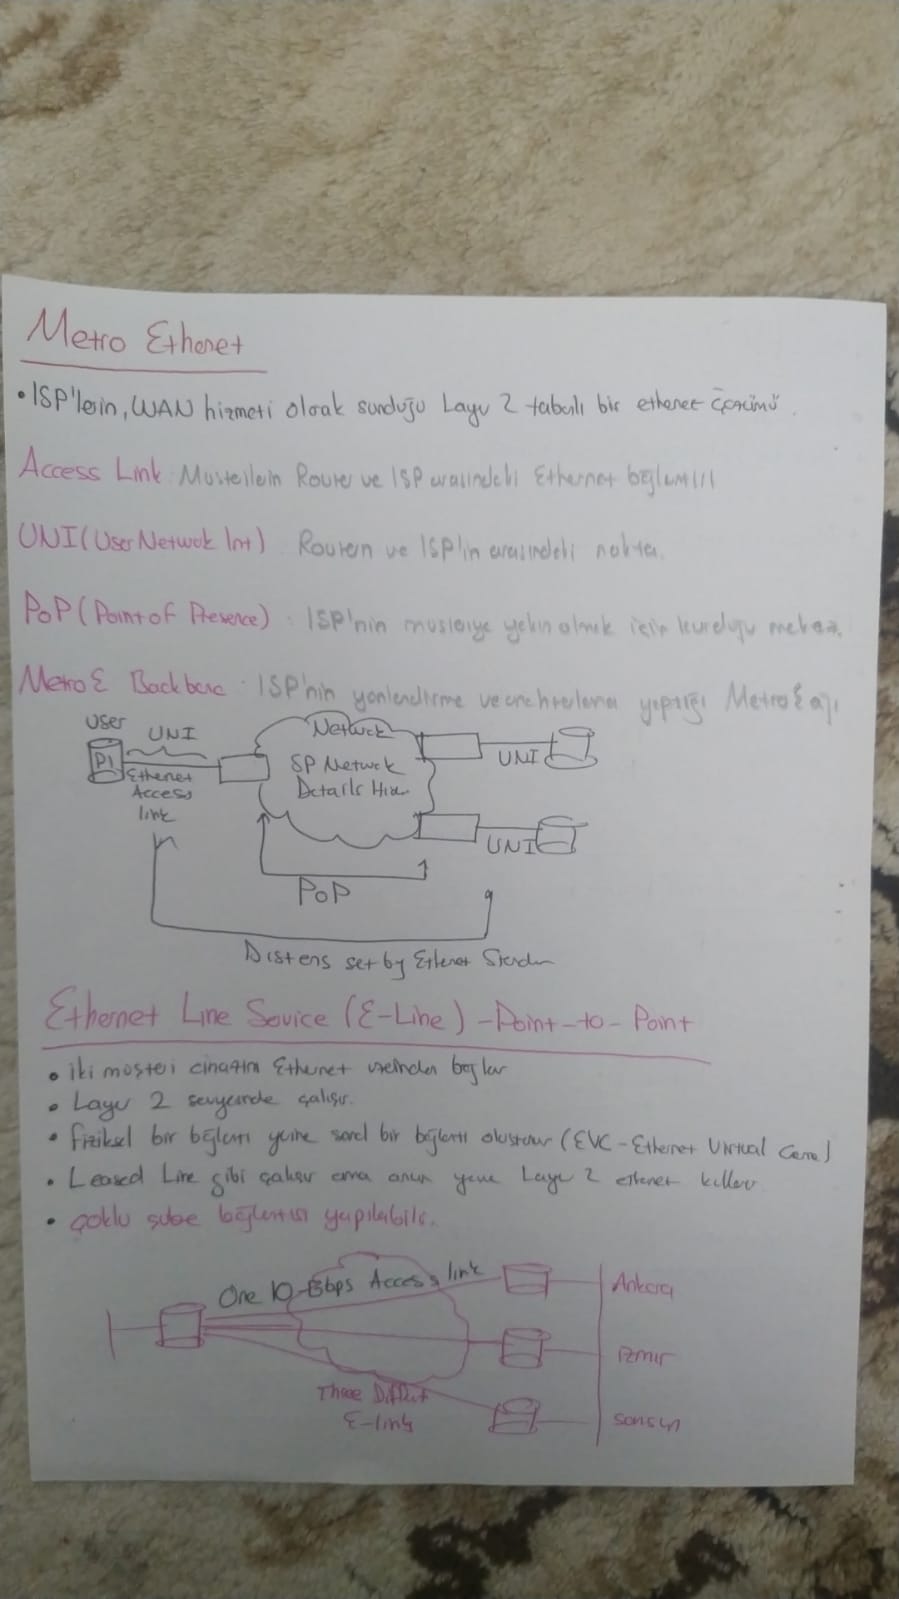 Metro Ethernet
• ISP'lerin, WAN hizmeti olarak sunduğu Layer 2 tabanlı bir ethernet çözümü.
Access Link: Müşterilerin Router ve ISP arasındaki Ethernet bağlantısı
UNI (User Network Int): Router ve ISP'in arasındaki nokta.
PoP (Point of Presence): ISP'nin müşteriye yakın olmak için kurduğu merkez.
Metro E Backbone: ISP'nin yönlendirme ve yaptığı Metro E ağı
User
UNI
P1
Ethernet
Access
link
Network
SP Network
Details
UNI
UNI
PoP
set by Ethernet
Ethernet Line Service (E-Line) - Point-to-Point
• iki müşteri cihazını Ethernet üzerinden bağlar
• Layer 2 seviyesinde çalışır.
• fiziksel bir bağlantı yerine sanal bir bağlantı oluşturur (EVC - Ethernet Virtual Canal)
• Leased Line gibi çalışır ama onun yerine Layer 2 ethernet kullanır
• Çoklu şube bağlantısı yapılabilir.
One 10-Gbps Access link
Ankara
İzmir
Three
E-link